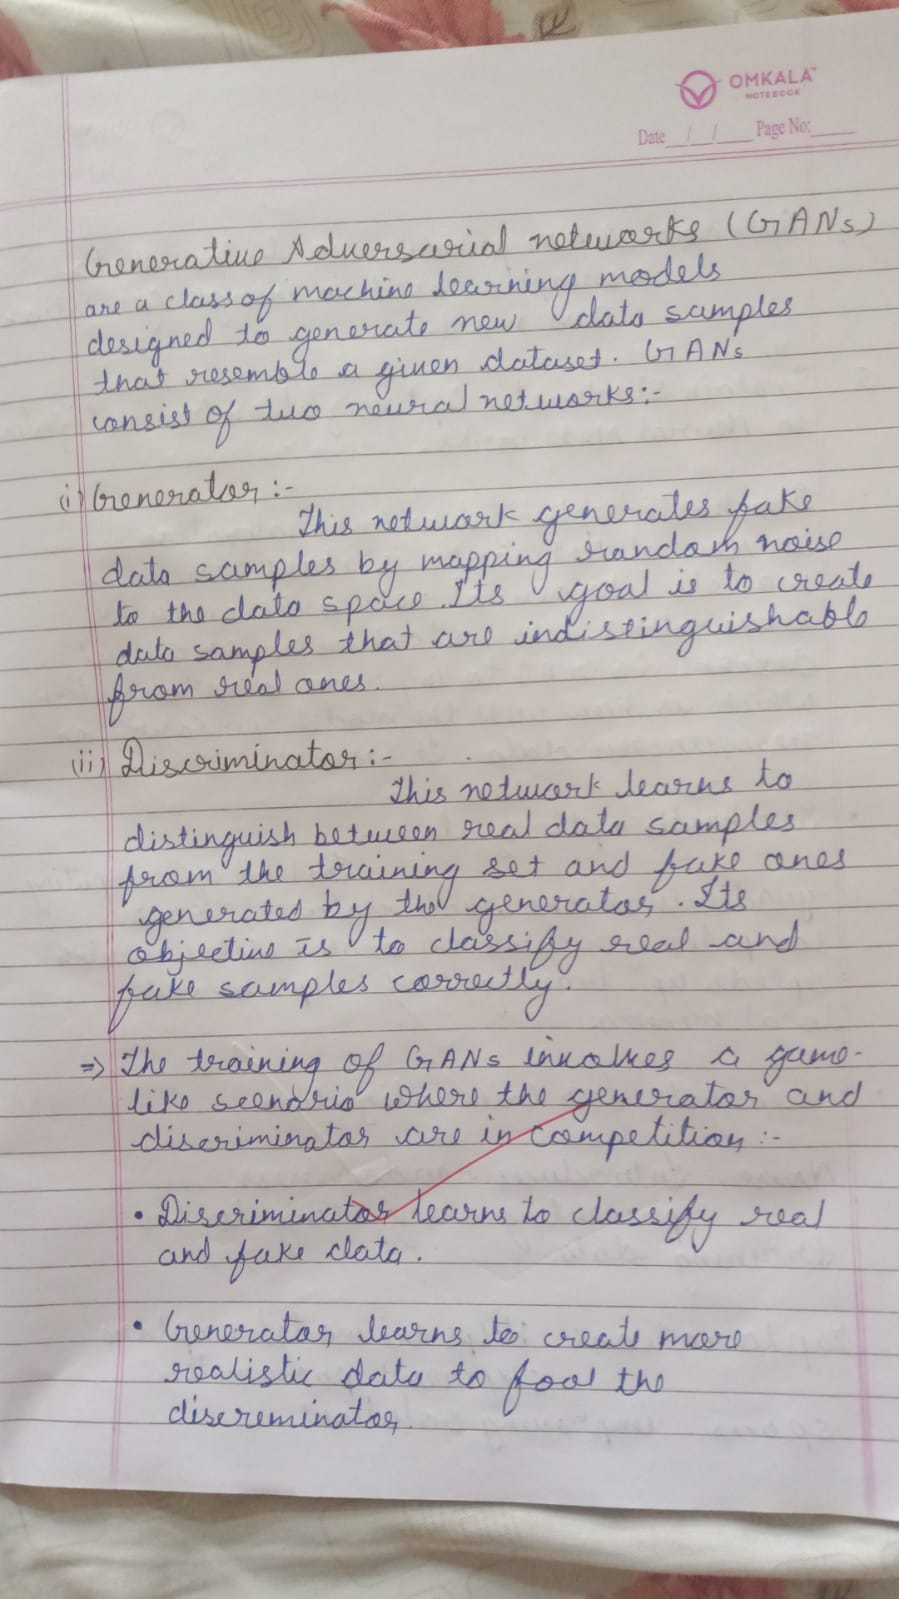 OMKALA™
NOTEBOOK
Date __/__/____ Page No: _____
Generative Adversarial networks (GANs)
are a class of machine learning models
designed to generate new data samples
that resemble a given dataset. GANs
consist of two neural networks:-
(i) Generator :-
This network generates fake
data samples by mapping random noise
to the data space. Its goal is to create
data samples that are indistinguishable
from real ones.
(ii) Discriminator :-
This network learns to
distinguish between real data samples
from the training set and fake ones
generated by the generator. Its
objective is to classify real and
fake samples correctly.
⇒ The training of GANs involves a game-
like scenario where the generator and
discriminator are in competition :-
• Discriminator learns to classify real
and fake data.
• Generator learns to create more
realistic data to fool the
discreminator.